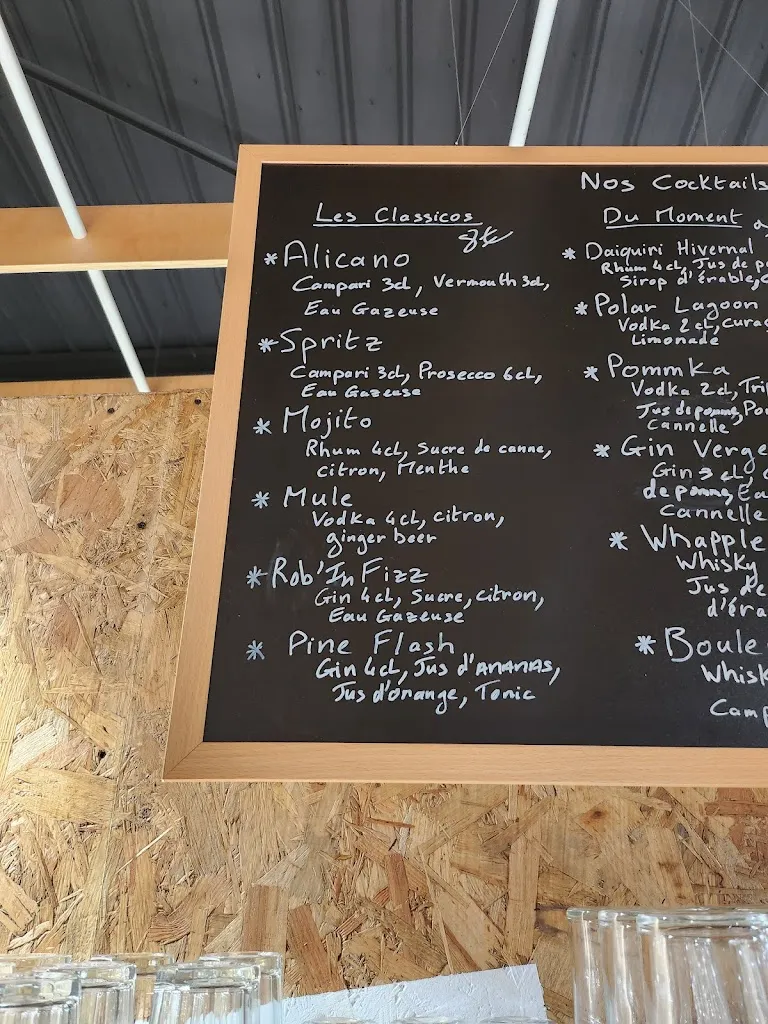 Nos Cocktails
Les Classicos
8€
*Alicano
Campari 3cl, Vermouth 3cl,
Eau Gazeuse
*Spritz
Campari 3cl, Prosecco 6cl,
Eau Gazeuse
* Mojito
Rhum 4cl, Sucre de canne,
citron, Menthe
* Mule
Vodka 4cl, citron,
ginger beer
*Rob'In Fizz
Gin 4cl, Sucre, citron,
Eau Gazeuse
* Pine Flash
Gin 4cl, Jus d'ANANAS,
Jus d'orange, Tonic
Du Moment
* Daiquiri Hivernal
Rhum 4cl, Jus de
Sirop d'érable,
* Polar Lagoon
Vodka 2cl,
Limonade
* Pommka
Vodka 2cl,
Jus de pomme,
Cannelle
* Gin
Gin 3cl,
de pomme,
Cannelle
* Whapple
Whisky
Jus de
*